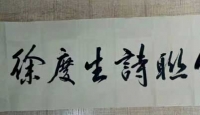 徐度生詩聯